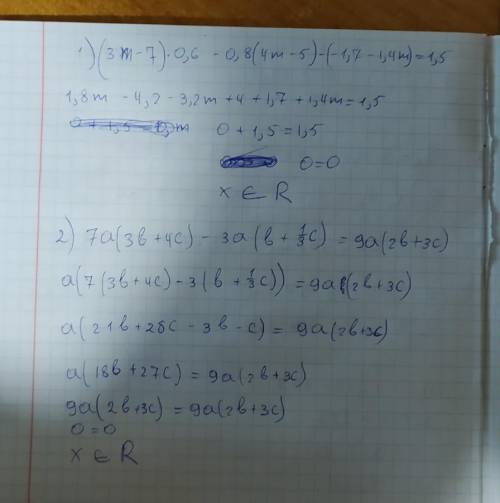 1) (3m-7)·0,6 - 0,8(4m-5)-(-1,7-1,4m)=1,5
1,8m - 4,2 - 3,2m + 4 + 1,7 + 1,4m = 1,5
0 + 1,5 = 1,5
0=0
x ∈ R
2) 7a(3в+4c) - 3a(в+⅓c) = 9a(2в+3c)
a(7(3в+4c)-3(в+⅓c)) = 9a(2в+3c)
a(21в+28c-3в-c) = 9a(2в+3c)
a(18в+27c) = 9a(2в+3c)
9a(2в+3c) = 9a(2в+3c)
0=0
x ∈ R